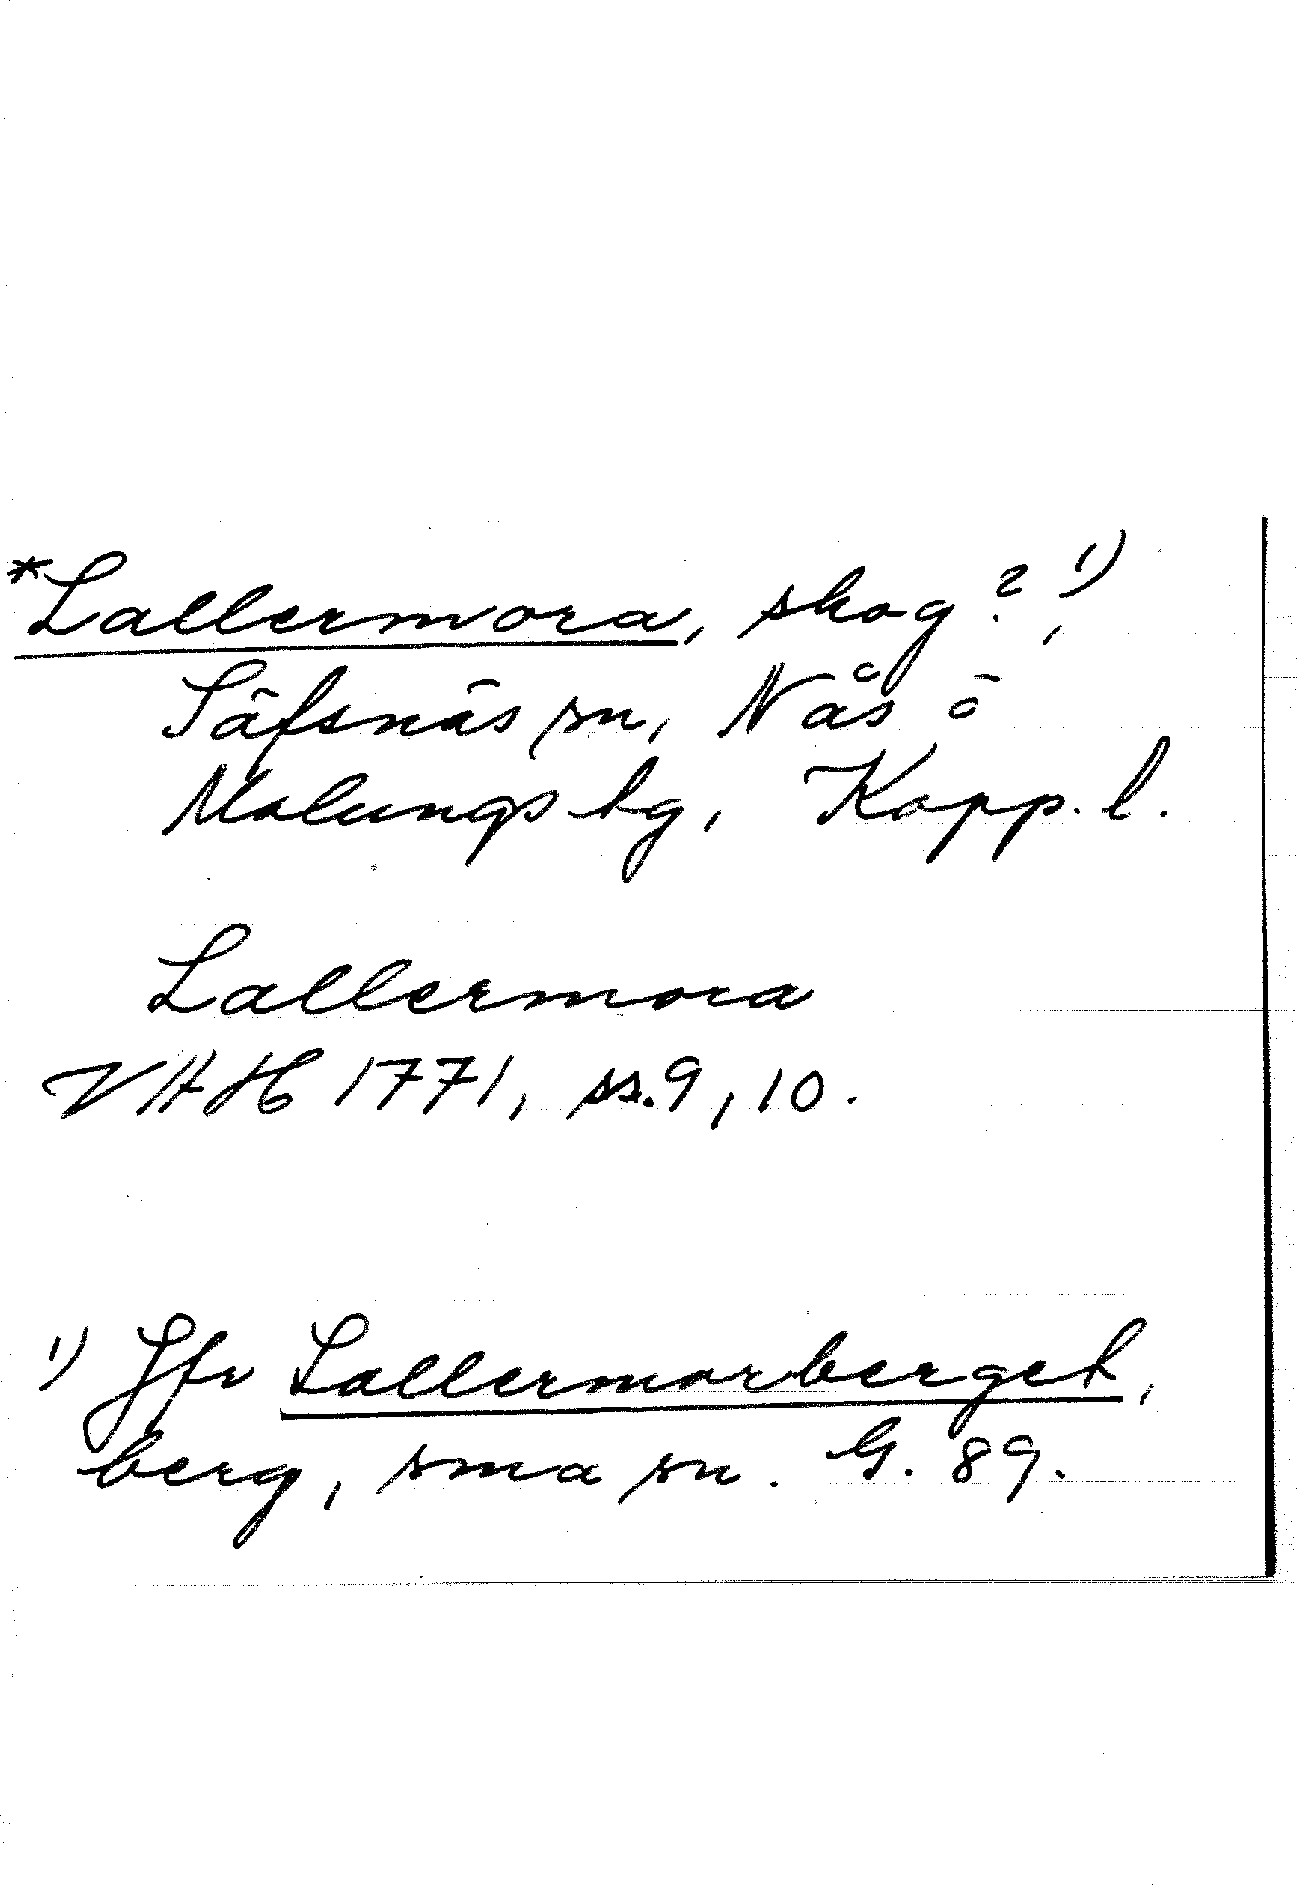 *Lallermora, skog?,¹)
Säfsnäs sn, Nås o
Malungs tg, Kopp. l.
Lallermora
VHH 1771, ss. 9, 10.
¹) Jfr Lallermorberget,
berg, sma sn. G. 89.